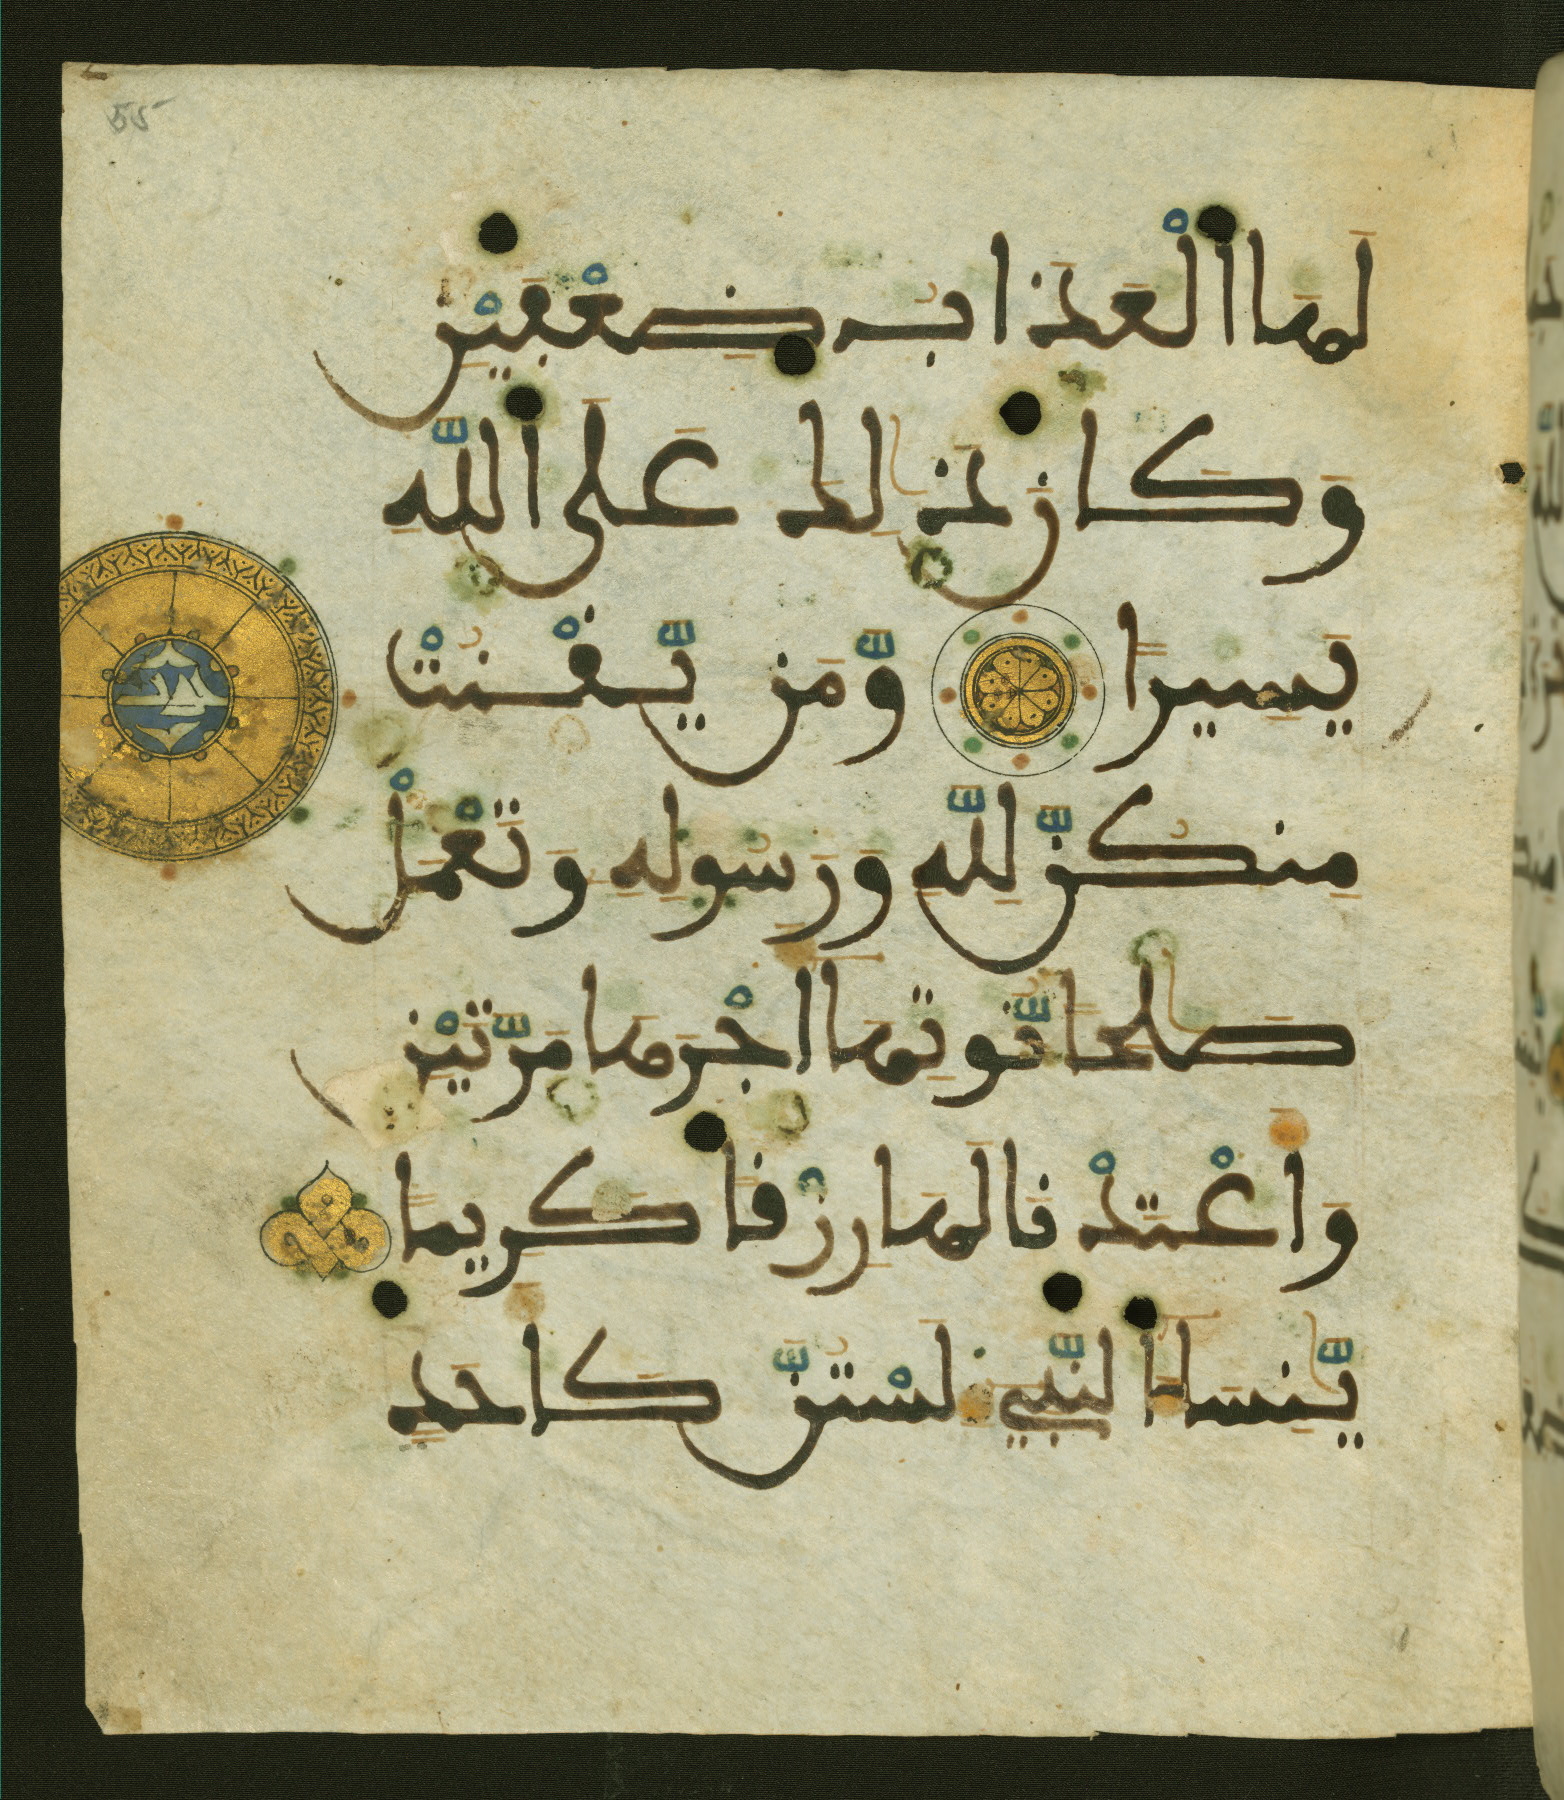 55
لَهَا الْعَذَابُ ضِعْفَيْنِ
وَكَانَ ذَٰلِكَ عَلَى اللَّهِ
يَسِيرًا وَّمَن يَّقْنُتْ
مِنكُنَّ لِلَّهِ وَرَسُولِهِ وَتَعْمَلْ
صَٰلِحًا نُّوتِهَا أَجْرَهَا مَرَّتَيْنِ
وَأَعْتَدْنَا لَهَا رِزْقًا كَرِيمًا
يَٰنِسَآءَ النَّبِيءِ لَسْتُنَّ كَأَحَدٍ